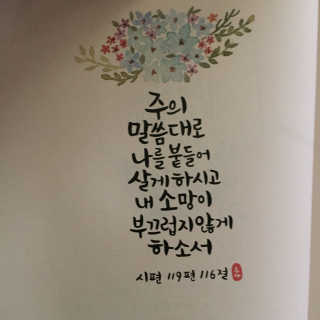 주의
말씀대로
나를 붙들어
살게 하시고
내 소망이
부끄럽지 않게
하소서
시편 119편 116절